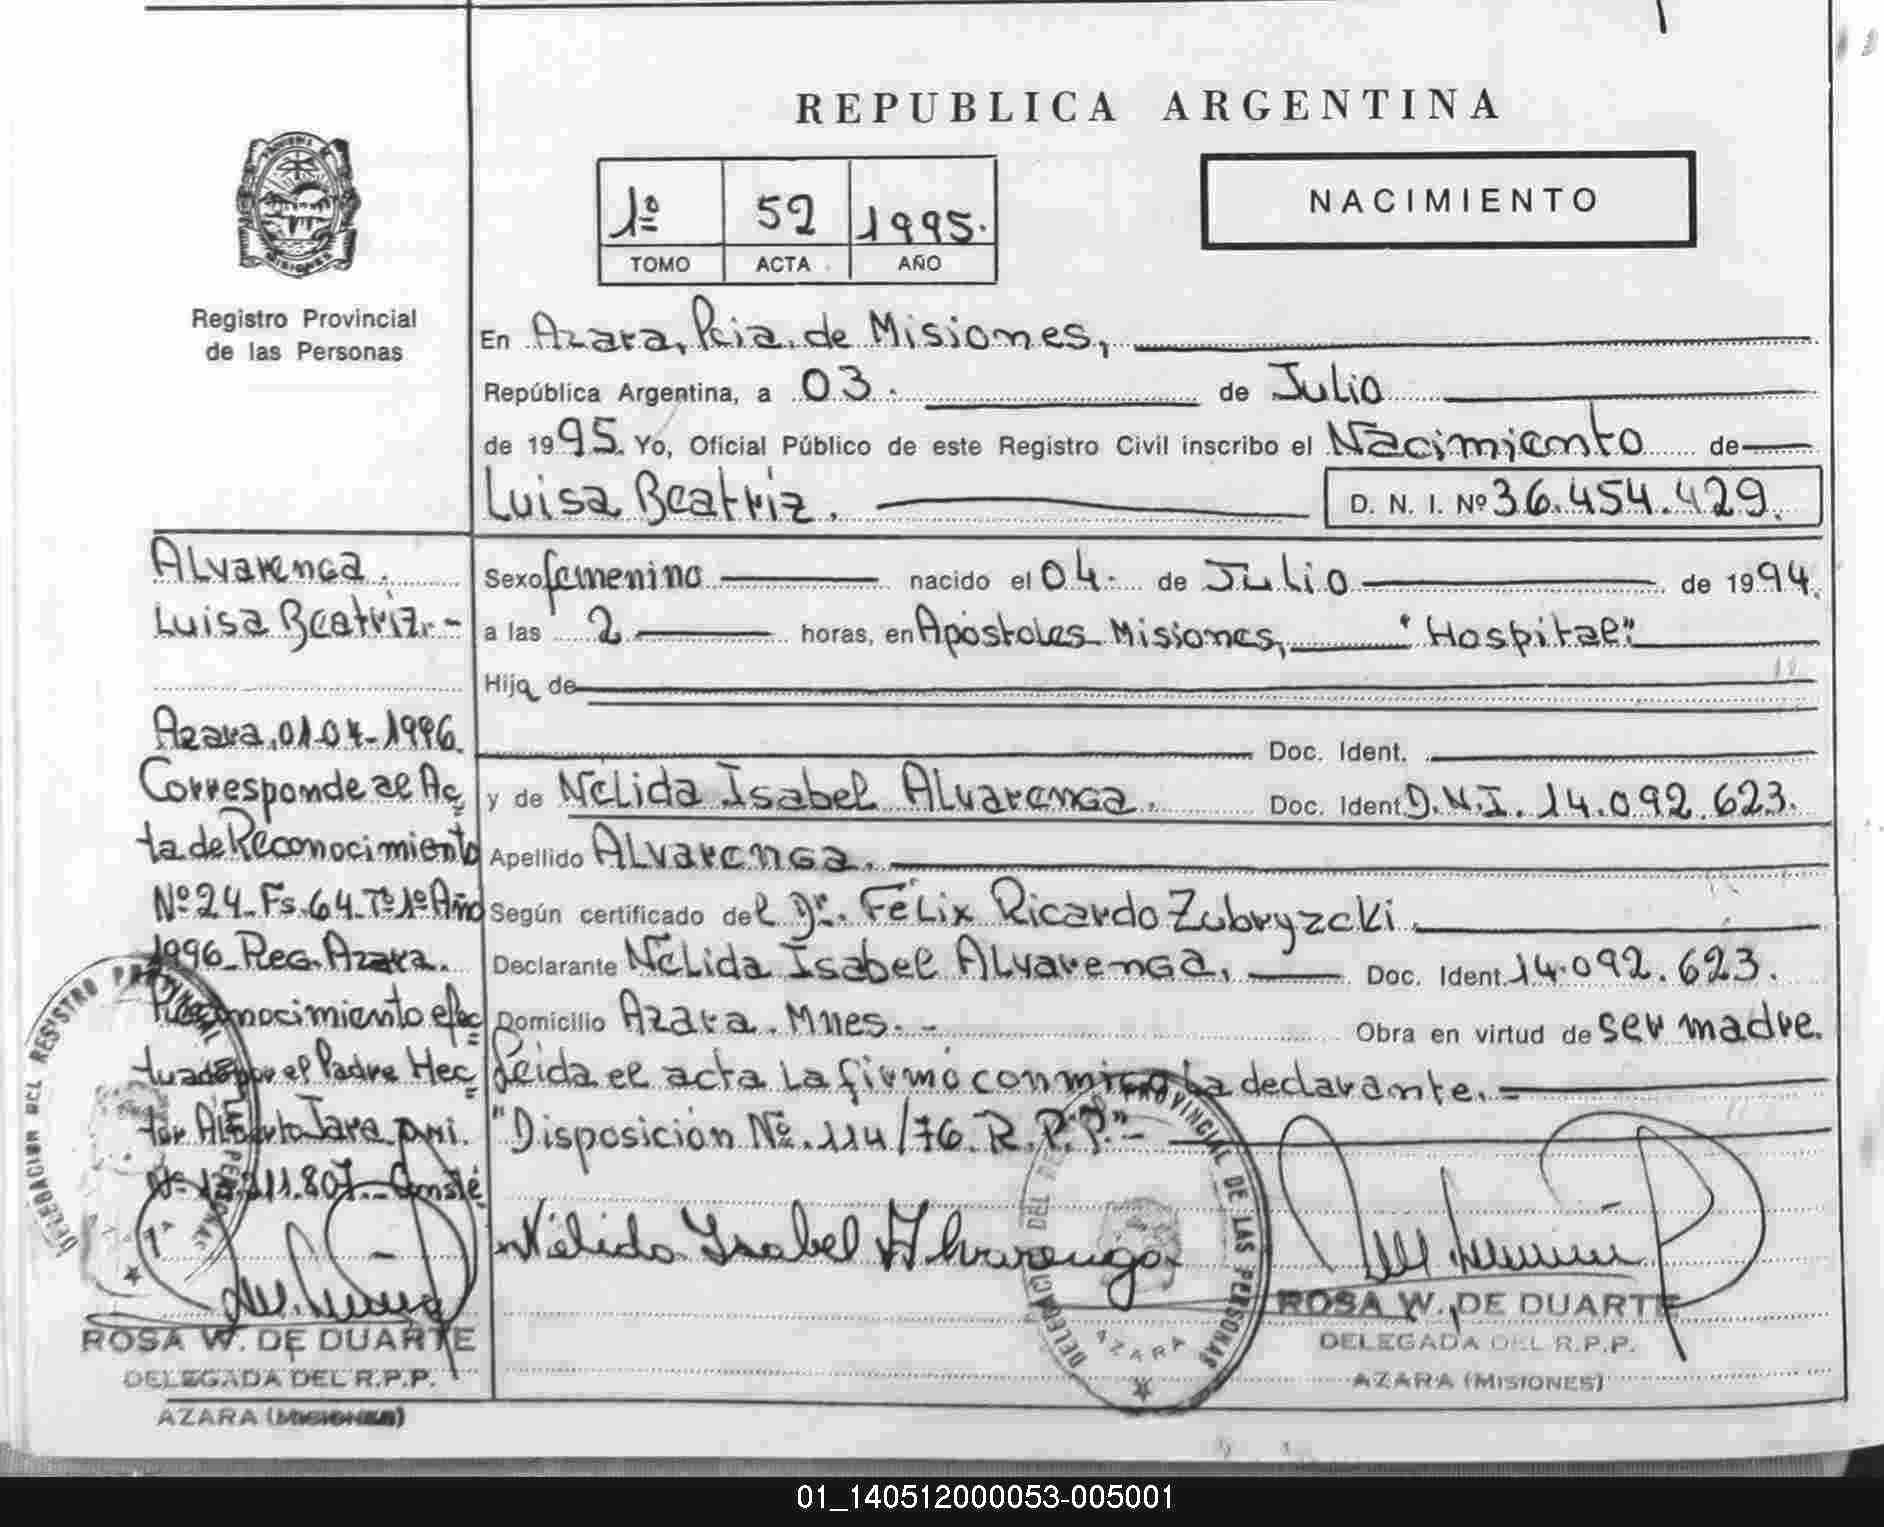 REPUBLICA ARGENTINA
1º 52 1995.
TOMO ACTA AÑO
NACIMIENTO
MISIONES
Registro Provincial
de las Personas
En Azara, Pcia. de Misiones,
República Argentina, a 03. de Julio
de 1995. Yo, Oficial Público de este Registro Civil inscribo el Nacimiento de
Luisa Beatriz. D. N. I. Nº 36.454.429.
Sexo femenino nacido el 04. de Julio de 1994.
a las 2 horas, en Apóstoles Misiones, "Hospital".
Hija de
Doc. Ident.
y de Nélida Isabel Alvarenga. Doc. Ident. D.N.I. 14.092.623.
Apellido Alvarenga.
Según certificado del Dr. Félix Ricardo Zubryzcki
Declarante Nélida Isabel Alvarenga, Doc. Ident. 14.092.623.
Domicilio Azara. Mnes. - Obra en virtud de ser madre.
Leida el acta la firmó conmigo la declarante. -
"Disposición Nº. 114/76. R.P.P." -
Nélida Isabel Alvarenga
DELEGACION DEL REGISTRO PROVINCIAL DE LAS PERSONAS
AZARA
ROSA W. DE DUARTE
DELEGADA DEL R.P.P.
AZARA (MISIONES)
Alvarenga.
Luisa Beatriz. -
Azara, 01-04-1996.
Corresponde al Ac
ta de Reconocimiento
Nº 24. Fs. 64. Tº 1º Año
1996. Reg. Azara.
Reconocimiento efec
tuado por el Padre Hec
tor Alberto Jara DNI.
Conste
DELEGACION DEL REGISTRO PROVINCIAL DE LAS PERSONAS
ROSA W. DE DUARTE
DELEGADA DEL R.P.P.
AZARA (MISIONES)
01_140512000053-005001